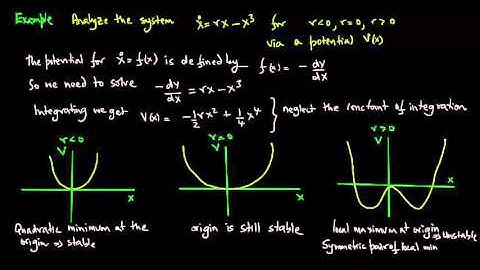 Example Analyze the system ẋ = rx - x³ for r<0, r=0, r>0
via a potential V(x)
The potential for ẋ = f(x) is defined by f(x) = - dV/dx
So we need to solve - dV/dx = rx - x³
Integrating we get V(x) = - 1/2 rx² + 1/4 x⁴ } neglect the constant of integration
r<0 r=0 r>0
V V V
x x x
Quadratic minimum at the
origin ⇒ stable
origin is still stable
local maximum at origin ⇒ unstable
Symmetric pair of local min